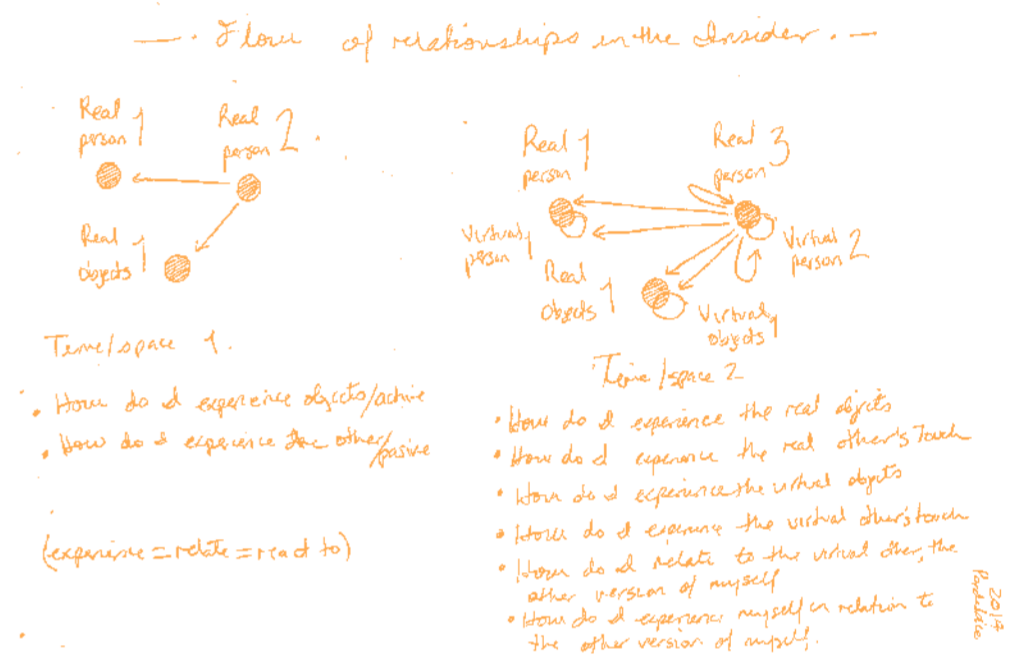 Flow of relationships in the Insider.
Real person 1
Real person 2
Real objects 1
Time/space 1.
• How do I experience objects/active
• How do I experience the other/pasive
(experience = relate = react to)
Real person 1
Real person 3
Virtual person 1
Virtual person 2
Real objects 1
Virtual objects 1
Time/space 2
• How do I experience the real objects
• How do I experience the real other's Touch
• How do I experience the virtual objects
• How do I experience the virtual other's touch
• How do I relate to the virtual other, the
other version of myself
• How do I experience myself in relation to
the other version of myself.